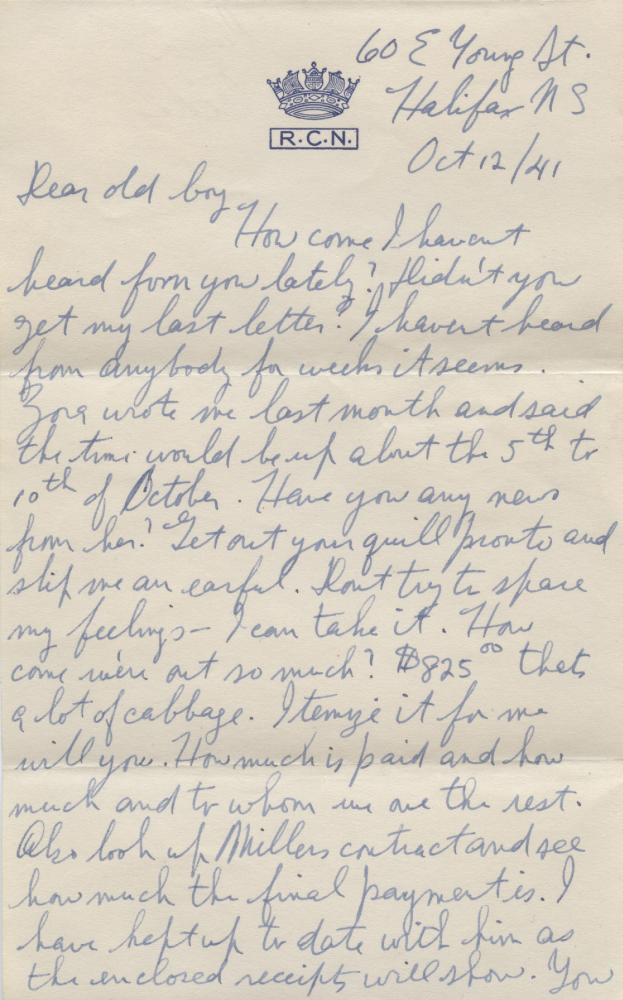 60 E Young St.
Halifax N S
R.C.N.
Oct 12/41
Dear old boy
How come I havent
heard from you lately? Didn't you
get my last letter? I havent heard
from anybody for weeks it seems.
Zora wrote me last month and said
the time would be up about the 5th to
10th of October. Have you any news
from her? Get out your quill pronto and
slip me an earful. Dont try to spare
my feelings - I can take it. How
come we're out so much? $825 00 thats
a lot of cabbage. Itemize it for me
will you. How much is paid and how
much and to whom we owe the rest.
Also look up Millers contract and see
how much the final payment is. I
have kept up to date with him as
the enclosed receipts will show. You